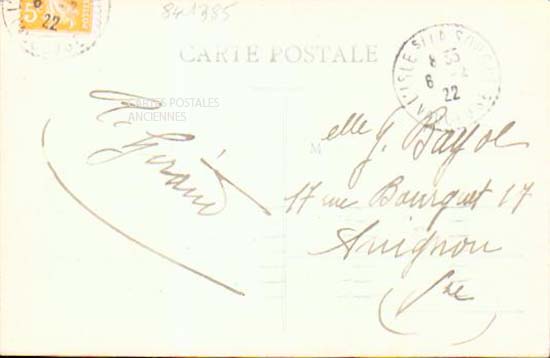 841385
5
22
CARTE POSTALE
L'ISLE S/LA SORGUE
8 35
6
22
CARTES POSTALES
ANCIENNES
Giraud
M elle G. Bayol
17 rue Bourguet 17
Avignon